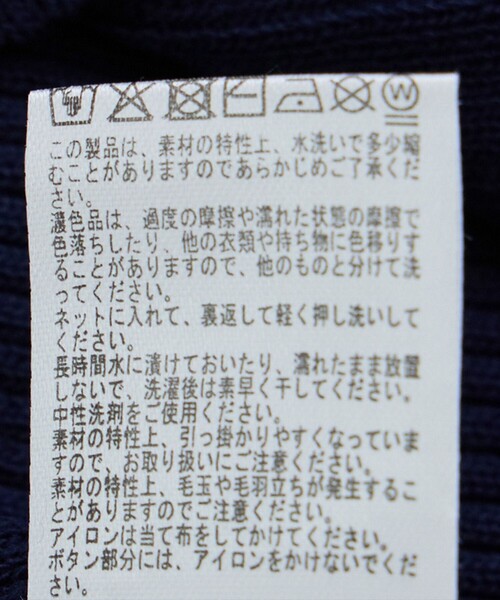 この製品は、素材の特性上、水洗いで多少縮
むことがありますのであらかじめご了承くだ
さい。
濃色品は、過度の摩擦や濡れた状態の摩擦で
色落ちしたり、他の衣類や持ち物に色移りす
ることがありますので、他のものと分けて洗
ってください。
ネットに入れて、裏返して軽く押し洗いして
ください。
長時間水に漬けておいたり、濡れたまま放置
しないで、洗濯後は素早く干してください。
中性洗剤をご使用ください。
素材の特性上、引っ掛かりやすくなっていま
すので、お取り扱いにご注意ください。
素材の特性上、毛玉や毛羽立ちが発生するこ
とがありますのでご注意ください。
アイロンは当て布をしてかけてください。
ボタン部分には、アイロンをかけないでくだ
さい。